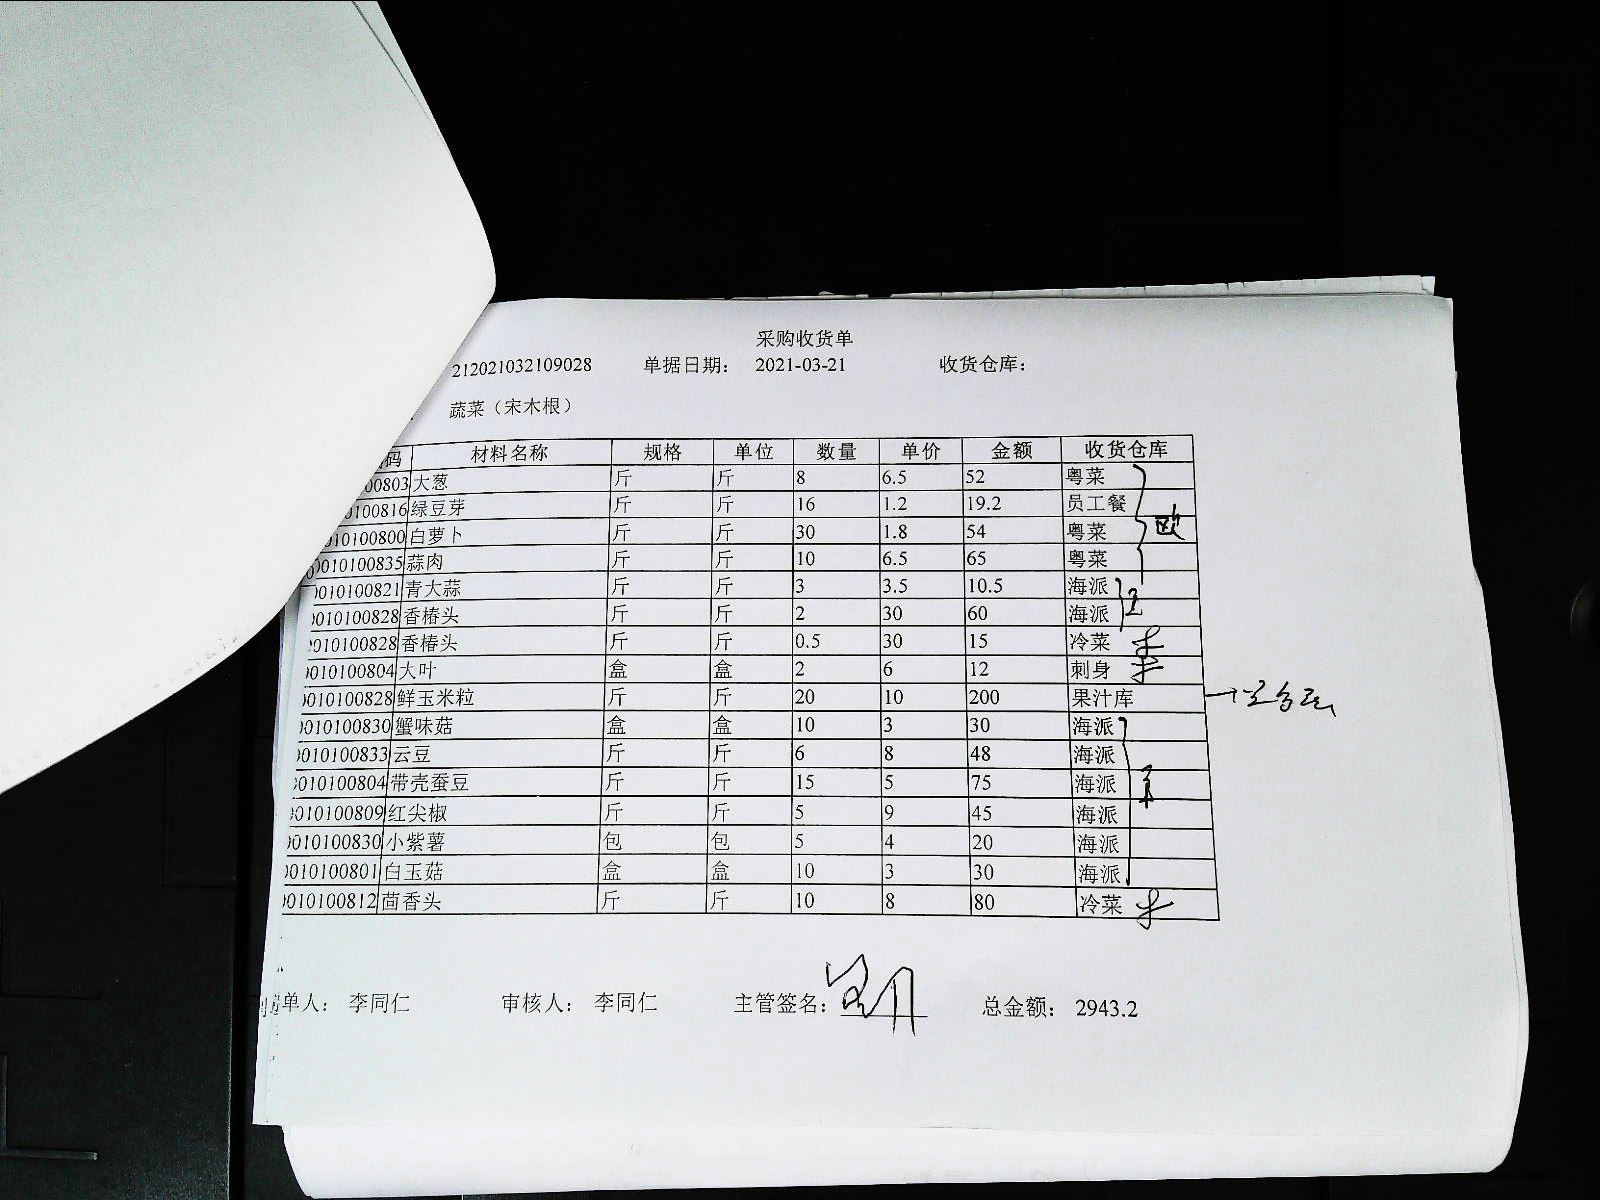 采购收货单
212021032109028 单据日期： 2021-03-21 收货仓库：
蔬菜（宋木根）
码 材料名称 规格 单位 数量 单价 金额 收货仓库
00803 大葱 斤 斤 8 6.5 52 粤菜
0100816 绿豆芽 斤 斤 16 1.2 19.2 员工餐
010100800 白萝卜 斤 斤 30 1.8 54 粤菜 欧
0010100835 蒜肉 斤 斤 10 6.5 65 粤菜
0010100821 青大蒜 斤 斤 3 3.5 10.5 海派
0010100828 香椿头 斤 斤 2 30 60 海派
0010100828 香椿头 斤 斤 0.5 30 15 冷菜
0010100804 大叶 盒 盒 2 6 12 刺身
0010100828 鲜玉米粒 斤 斤 20 10 200 果汁库
0010100830 蟹味菇 盒 盒 10 3 30 海派
0010100833 云豆 斤 斤 6 8 48 海派
0010100804 带壳蚕豆 斤 斤 15 5 75 海派
0010100809 红尖椒 斤 斤 5 9 45 海派
0010100830 小紫薯 包 包 5 4 20 海派
0010100801 白玉菇 盒 盒 10 3 30 海派
0010100812 茴香头 斤 斤 10 8 80 冷菜
单人： 李同仁 审核人： 李同仁 主管签名： 总金额： 2943.2